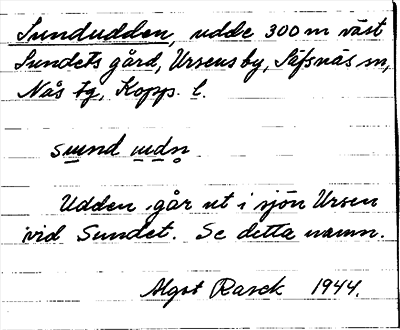 Sundudden, udde 300 m väst
Sundets gård, Ursens by, Säfsnäs sn,
Nås tg, Kopps. l.
sund udn
Udden går ut i sjön Ursen
vid Sundet. Se detta namn.
Algot Rask 1944.